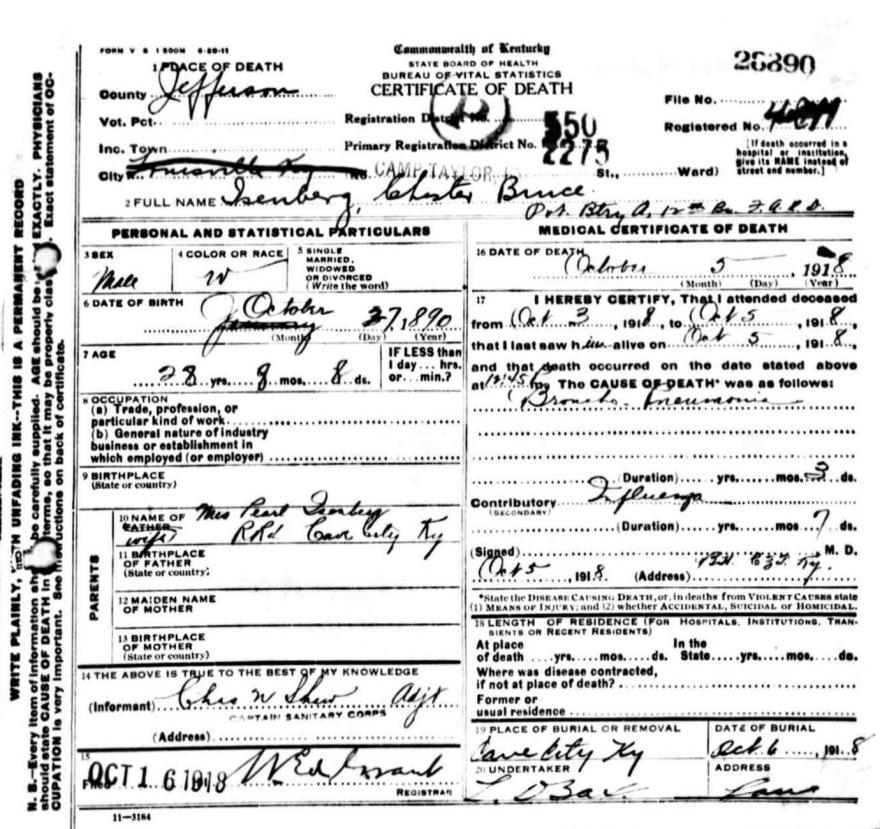 FORM V S 1 500M 6-20-11
Commonwealth of Kentucky
STATE BOARD OF HEALTH
BUREAU OF VITAL STATISTICS
CERTIFICATE OF DEATH
26890
1 PLACE OF DEATH
County Jefferson
Vot. Pct.
Inc. Town
City Louisville Ky
Registration District No. 550
Primary Registration District No. 2275
No. CAMP TAYLOR St., Ward)
File No.
Registered No.
[If death occurred in a
hospital or institution,
give its NAME instead of
street and number.]
2 FULL NAME Isenberg, Chester Bruce
Pvt. Btry A, 12th Bn F.A.R.D.
PERSONAL AND STATISTICAL PARTICULARS
3 SEX
Male
4 COLOR OR RACE
W
5 SINGLE
MARRIED,
WIDOWED
OR DIVORCED
(Write the word)
6 DATE OF BIRTH
October 27, 1890
January
(Month) (Day) (Year)
7 AGE
28 yrs. 9 mos. 8 ds.
IF LESS than
1 day... hrs.
or... min.?
8 OCCUPATION
(a) Trade, profession, or
particular kind of work
(b) General nature of industry
business or establishment in
which employed (or employer)
9 BIRTHPLACE
(State or country)
PARENTS
10 NAME OF Mrs Pearl Isenberg
FATHER
wife RR1 Cave City Ky
11 BIRTHPLACE
OF FATHER
(State or country)
12 MAIDEN NAME
OF MOTHER
13 BIRTHPLACE
OF MOTHER
(State or country)
14 THE ABOVE IS TRUE TO THE BEST OF MY KNOWLEDGE
(Informant) Chas W Shaw Adjt
CAPTAIN SANITARY CORPS
(Address)
15
Filed OCT 16 1918
REGISTRAR
11-3184
MEDICAL CERTIFICATE OF DEATH
16 DATE OF DEATH
October 5, 1918
(Month) (Day) (Year)
17 I HEREBY CERTIFY, That I attended deceased
from Oct 3, 1918, to Oct 5, 1918,
that I last saw him alive on Oct 5, 1918,
and that death occurred on the date stated above
at 12:45 m. The CAUSE OF DEATH* was as follows:
Broncho-Pneumonia
(Duration) yrs. mos. 3 ds.
Contributory Influenza
(SECONDARY)
(Duration) yrs. mos. 7 ds.
(Signed) M. D.
Oct 5, 1918. (Address) B.H. C.Z.T. Ky.
*State the DISEASE CAUSING DEATH, or, in deaths from VIOLENT CAUSES state
(1) MEANS OF INJURY; and (2) whether ACCIDENTAL, SUICIDAL or HOMICIDAL.
18 LENGTH OF RESIDENCE (FOR HOSPITALS, INSTITUTIONS, TRAN-
SIENTS OR RECENT RESIDENTS)
At place In the
of death yrs. mos. ds. State yrs. mos. ds.
Where was disease contracted,
if not at place of death?
Former or
usual residence
19 PLACE OF BURIAL OR REMOVAL
Cave City Ky
DATE OF BURIAL
Oct. 6, 1918
20 UNDERTAKER
ADDRESS
WRITE PLAINLY, WITH UNFADING INK--THIS IS A PERMANENT RECORD
N. B.--Every item of information should be carefully supplied. AGE should be EXACTLY. PHYSICIANS
should state CAUSE OF DEATH in terms, so that it may be properly Exact statement of OC-
CUPATION is very important. See instructions on back of certificate.